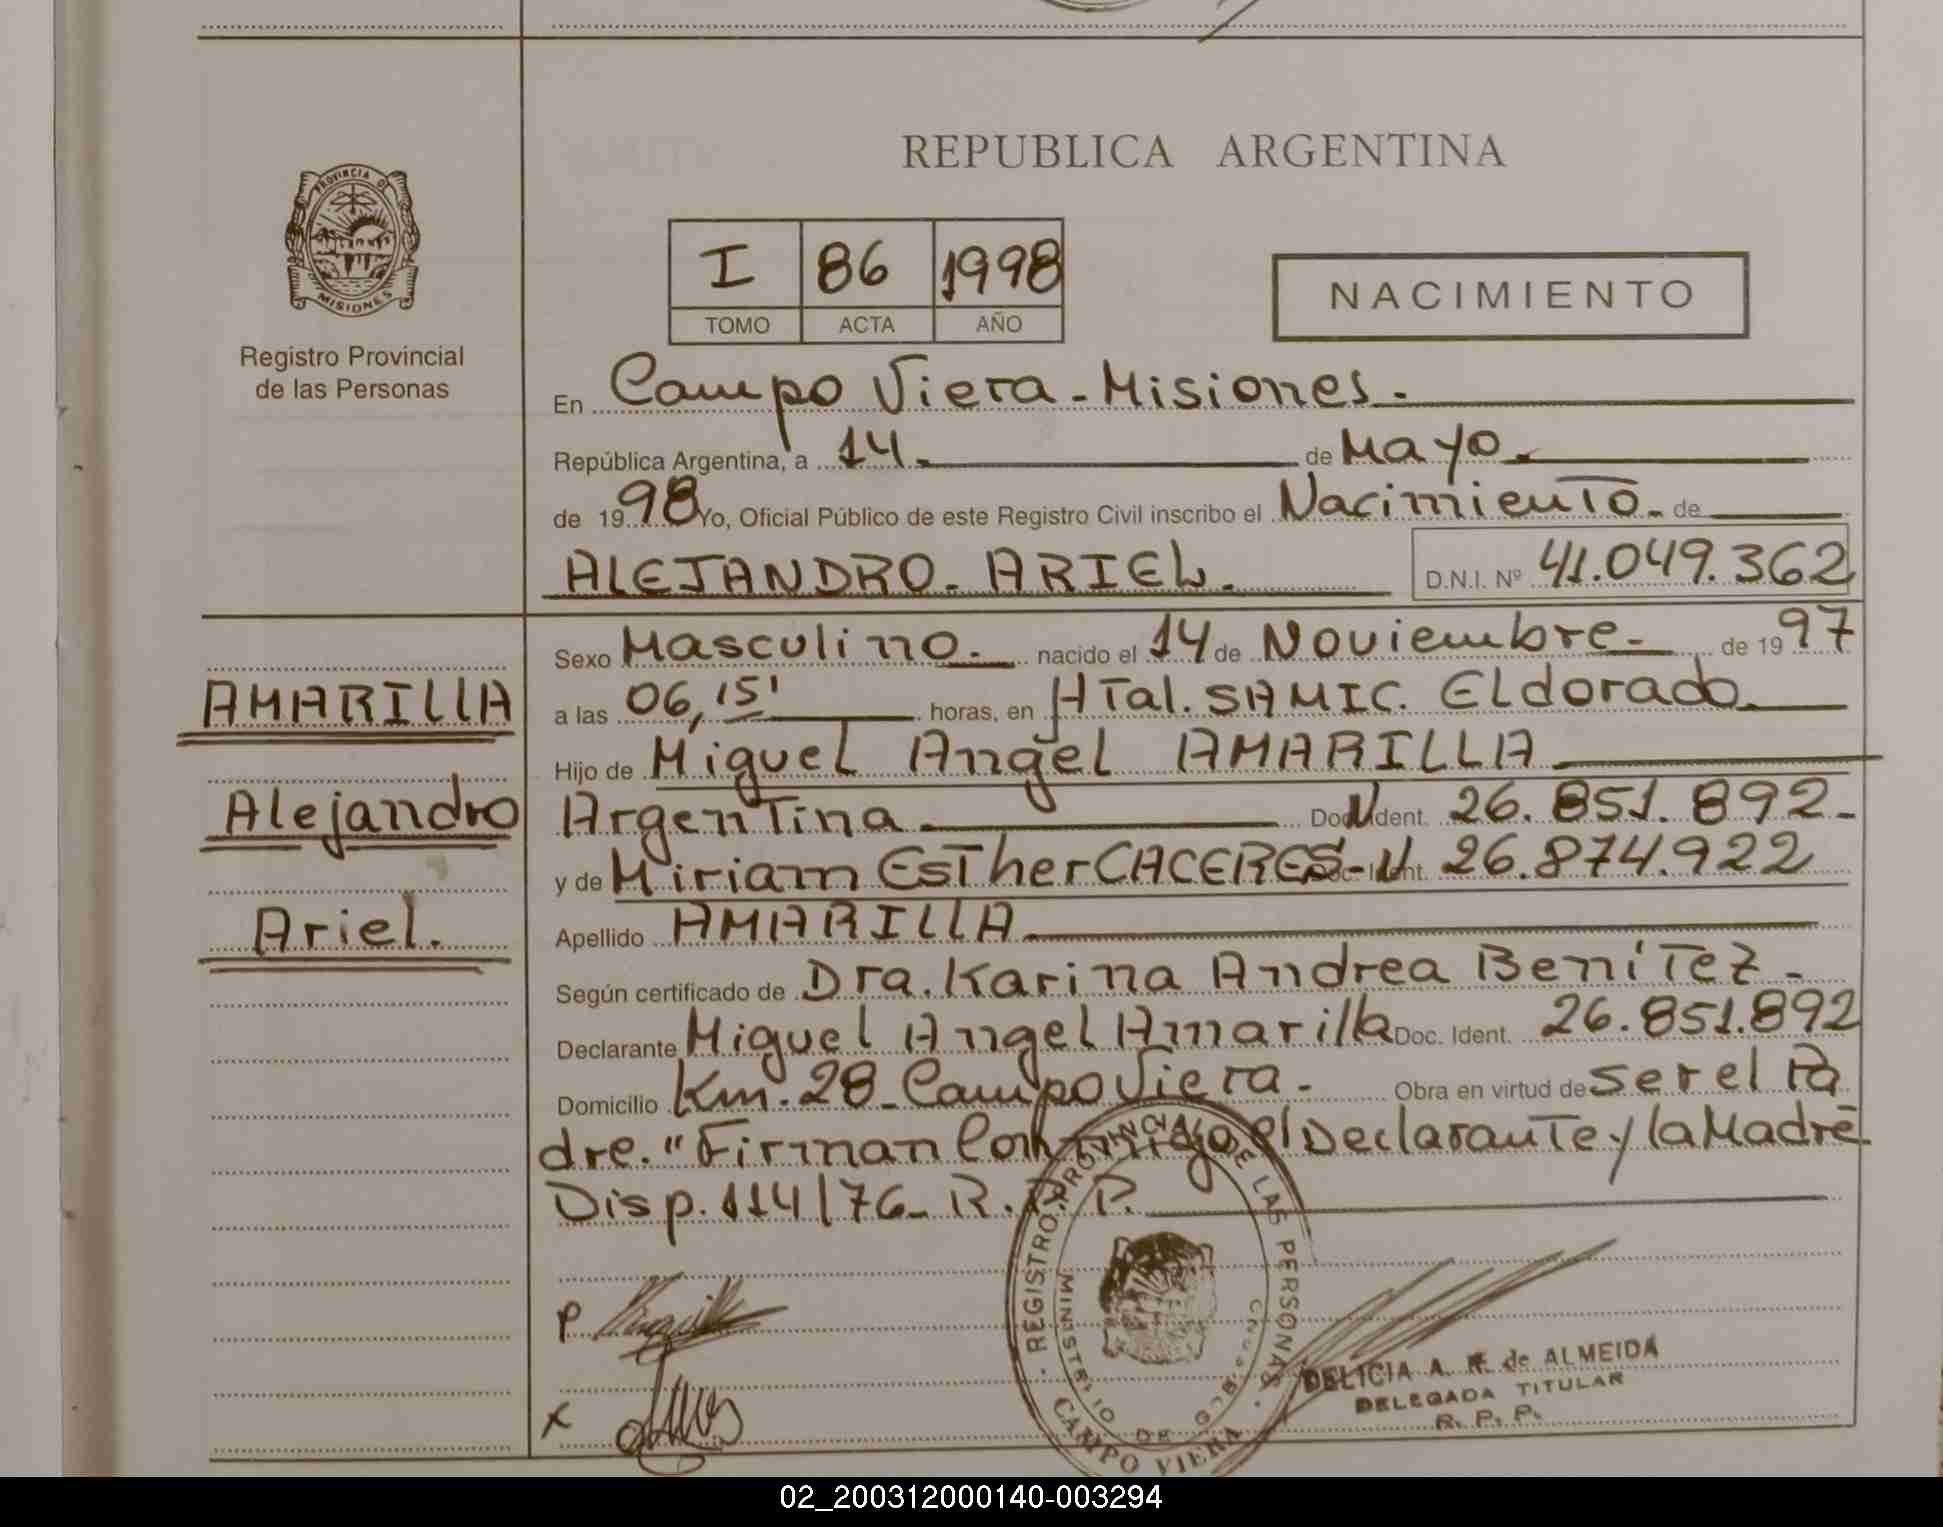 REPUBLICA ARGENTINA
PROVINCIA DE
MISIONES
Registro Provincial
de las Personas
I 86 1998
TOMO ACTA AÑO
NACIMIENTO
En Campo Viera - Misiones.
República Argentina, a 14. de Mayo.
de 1998 Yo, Oficial Público de este Registro Civil inscribo el Nacimiento. de
ALEJANDRO. ARIEL. D.N.I. Nº 41.049.362
AMARILLA
Alejandro
Ariel.
Sexo Masculino. nacido el 14 de Noviembre - de 1997
a las 06,15' horas, en HTal. SAMIC. Eldorado
Hijo de Miguel Angel AMARILLA
Argentina Doc. Ident. 26.851.892-
y de Miriam Esther CACERES - Doc. Ident. 26.874.922
Apellido AMARILLA
Según certificado de Dra. Karina Andrea BeníTez -
Declarante Miguel Angel Amarilla Doc. Ident. 26.851.892
Domicilio Km. 28 - Campo Viera. Obra en virtud de ser el Pa
dre. "Firman Conmigo el Declarante y la Madre
Disp. 114/76 - R. P. P.
P
X
REGISTRO PROVINCIAL DE LAS PERSONAS
MINISTERIO DE
CAMPO VIERA
DELICIA A. de ALMEIDA
DELEGADA TITULAR
R. P. P.
02_200312000140-003294